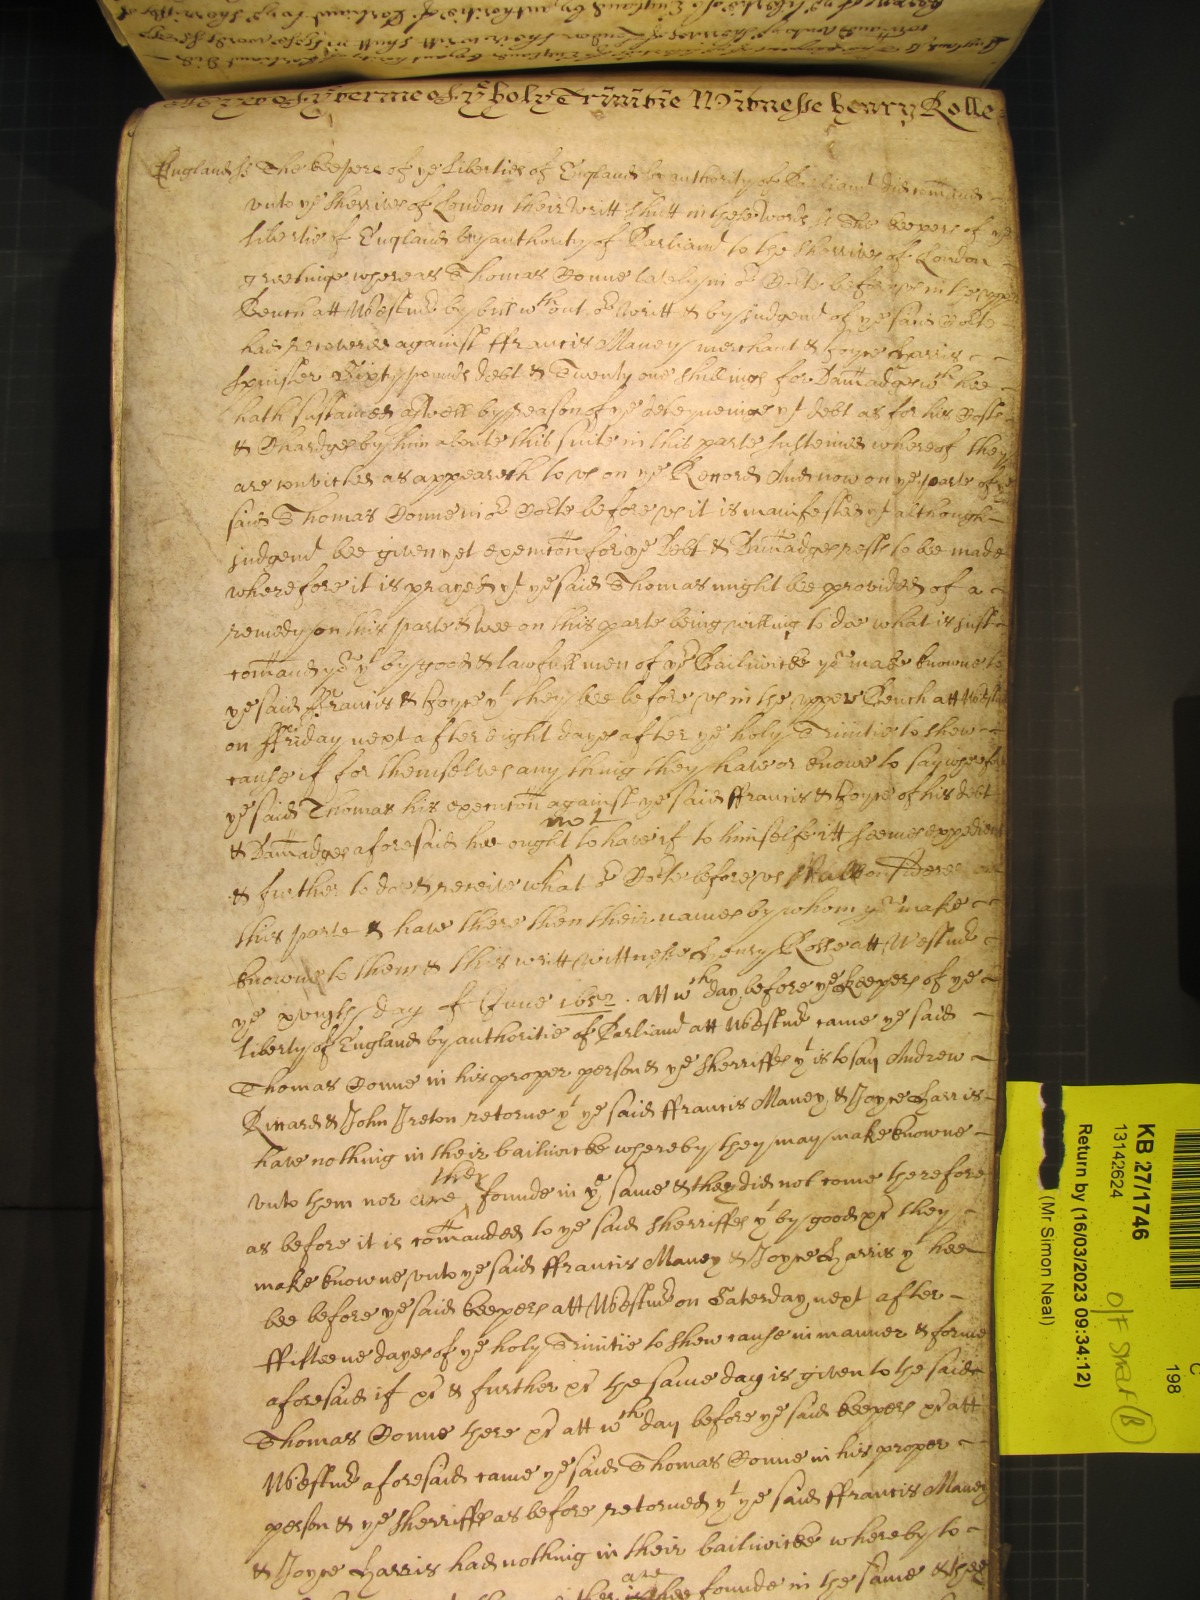 yet of ye terme of ye holy Trinitie Witnesse Henry Rolle
England ss The keepers of ye Liberties of England by authority of Parliamt did command
unto ye Sherrives of London their Writt shutt in these words ss The keepers of ye
libertie of England by authority of Parliamt to the Sherrives of London
greetinge whereas Thomas Donne lately in or Corte before us in the upper
Bench att Westmr by bill wthout or Writt & by Judgemt of ye said Corte
had recovered against ffrancis Maney merchant & Joyce Harris
Spinster Sixty pounds debt & Twenty one shillings for Damadges wch hee
hath sustained aswell by reason of ye deteyneinge yt debt as for his Costs
& Chardges by him aboute this suite in this parte susteined whereof they
are convicted as appeareth to us on ye Record And now on ye parte of ye
said Thomas Donne in or Corte before us it is manifested yt although
judgemt bee given yet execucon for ye Debt & Damadges rests to bee made
wherefore it is prayed yt ye said Thomas might bee provided of a
remedy on this parte & wee on this parte being willing to doe what is just
comand you yt by good & lawfull men of yor Bailiwicke you make knowne to
ye said ffrancis & Joyce yt they bee before us in the upper Bench att Westmr
on ffriday next after eight dayes after ye holy Trinitie to shew
cause if for themselves any thing they have or knowe to say wherefore
ye said Thomas his execucon against ye said ffrancis & Joyce of his debt
not
& Damadges aforesaid hee ought to have if to himselfe itt seemes expedient
& further to doe & receive what or Corte before us shall consider on
this parte & have there then their names by whom you make
knowne to them & this writt wittnesse Henry Rolle att Westmr
ye day of June 1652. att wch day before ye keepers of ye
liberty of England by authoritie of Parliamt att Westmr came ye said
Thomas Donne in his proper person & ye Sherriffes yt is to say Andrew
Riccard & John Ireton retorne yt ye said ffrancis Maney & Joyce Harris
have nothing in their bailiwicke whereby they may make knowne
they
unto them nor are founde in ye same & they did not come therefore
as before it is comanded to ye said Sherriffes yt by good &c they
make knowne unto ye said ffrancis Maney & Joyce Harris yt hee
bee before ye said keepers att Westmr on Saterday next after
ffifteene dayes of ye holy Trinitie to shew cause in manner & forme
aforesaid if &c & further &c the same day is given to the said
Thomas Donne there &c att wch day before ye said keepers &c att
Westmr aforesaid came ye said Thomas Donne in his proper
person & ye Sherriffes as before retorned yt ye said ffrancis Maney
& Joyce Harris had nothing in their bailiwicke whereby to
are
founde in the same & they
C
198
KB 27/1746
13142624
O/F Shelf (B)
Return by (16/03/2023 09:34:12)
(Mr Simon Neal)